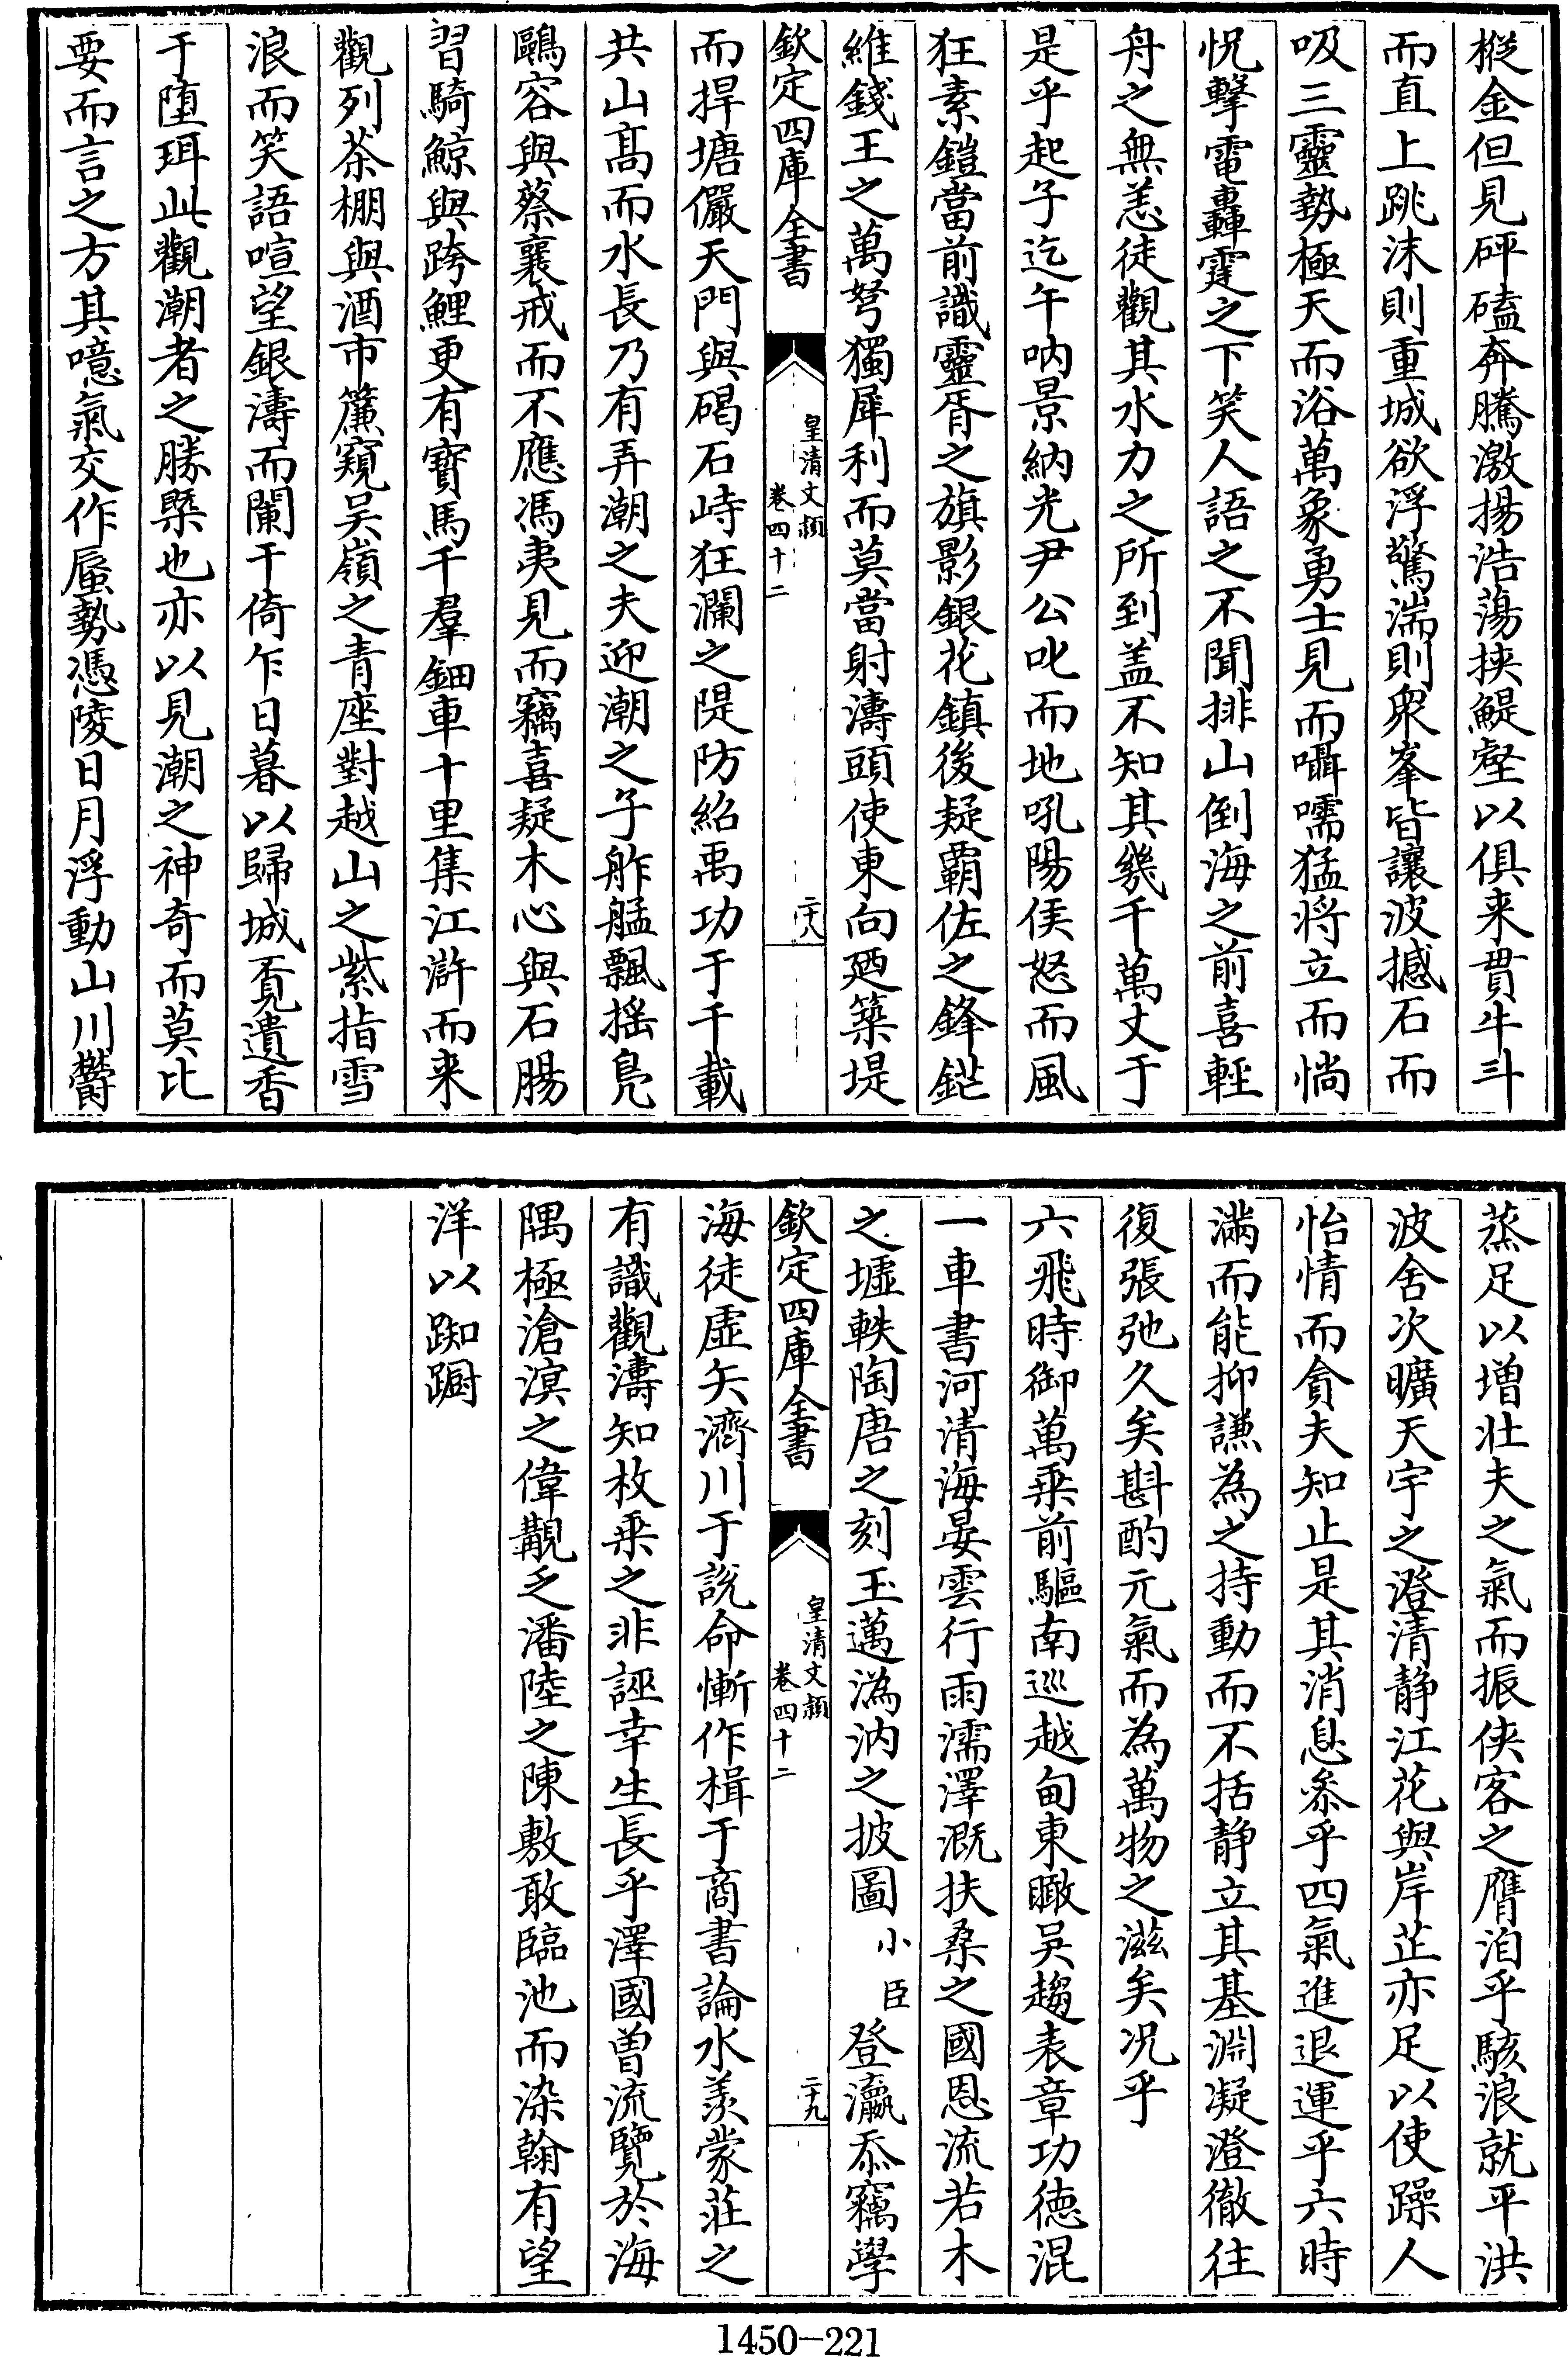 摐金但見砰磕奔騰激揚浩蕩挾鯷壑以俱来貫牛斗
而直上跳沫則重城欲浮驚湍則衆峯皆讓波撼石而
吸三靈勢極天而浴萬象勇士見而囁嚅猛将立而惝
怳擊電轟霆之下笑人語之不聞排山倒海之前喜輕
舟之無恙徒觀其水力之所到盖不知其幾千萬丈于
是乎起子迄午吶景納光尹公叱而地吼陽侯怒而風
狂素鎧當前識靈胥之旗影銀花鎮後疑霸佐之鋒鋩
維錢王之萬弩獨犀利而莫當射濤頭使東向廼築堤
欽定四庫全書
皇清文穎
卷四十二
二十八
而捍塘儼天門與碣石峙狂瀾之隄防紹禹功于千載
共山髙而水長乃有弄潮之夫迎潮之子舴艋飄揺鳬
鷗容與蔡襄戒而不應馮夷見而竊喜疑木心與石腸
習騎鯨與跨鯉更有寳馬千羣鈿車十里集江滸而来
觀列茶棚與酒市簾窺吴嶺之青座對越山之紫指雪
浪而笑語喧望銀濤而闌干倚乍日暮以歸城覔遺香
于堕珥此觀潮者之勝槩也亦以見潮之神奇而莫比
要而言之方其噫氣交作蜃勢憑陵日月浮動山川欝
蒸足以增壮夫之氣而振侠客之膺洎乎駭浪就平洪
波舍次曠天宇之澄清静江花與岸芷亦足以使躁人
怡情而貪夫知止是其消息叅乎四氣進退運乎六時
滿而能抑謙為之持動而不括静立其基淵凝澄徹往
復張弛久矣斟酌元氣而為萬物之滋矣况乎
六飛時御萬乘前驅南巡越甸東瞰吳趨表章功徳混
一車書河清海晏雲行雨濡澤溉扶桑之國恩流若木
之墟軼陶唐之刻玉邁溈汭之披圖小臣登瀛忝竊學
欽定四庫全書
皇清文穎
卷四十二
二十九
海徒虚矢濟川于說命慚作楫于商書論水羨蒙莊之
有識觀濤知枚乘之非誣幸生長乎澤國曽流覽於海
隅極滄溟之偉觀乏潘陸之陳敷敢臨池而染翰有望
洋以踟蹰
1450-221